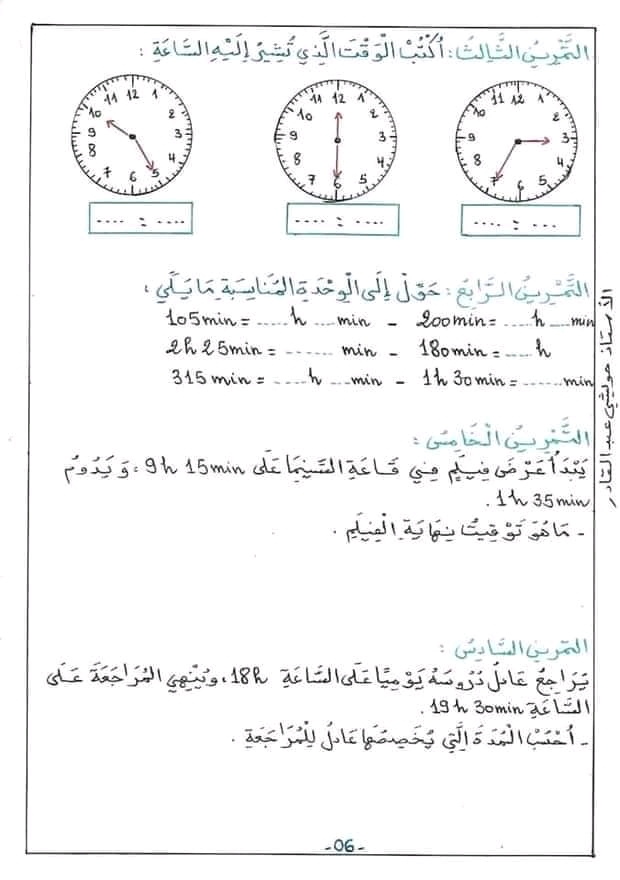 التَّمْرِينُ الثَّالِثُ : اُكْتُبْ الْوَقْتَ الَّذِي تُشِيرُ إِلَيْهِ السَّاعَةِ :
12 1 2 3 4 5 6 7 8 9 10 11
12 1 2 3 4 5 6 7 8 9 10 11
12 1 2 3 4 5 6 7 8 9 10 11
.... : .... .... : .... .... : ...
التَّمْرِينُ الرَّابِعُ : حَوِّلْ إِلَى الْوِحْدَةِ الْمُنَاسِبَةِ مَا يَلِي :
105min = ..... h .... min - 200min = .... h .... min
2h 25min = ....... min - 180min = .... h
315min = .... h ... min - 1h 30min = ...... min
التَّمْرِينُ الْخَامِسُ :
يَبْدَأُ عَرْضَ فِيلَمٍ فِي قَاعَةِ السِّينِمَا عَلَى 9h 15min ، وَ يَدُومُ
1h 35min .
- مَا هُوَ تَوْقِيتُ نِهَايَةِ الْفِيلَمِ .
التمرينُ السَّادِسُ :
يُرَاجِعُ عَادِلُ دُرُوسَهُ يَوْمِيًّا عَلَى السَّاعَةِ 18h ، وَيُنْهِي الْمُرَاجَعَةَ عَلَى
السَّاعَةِ 19h 30min .
- اُحْسُبْ الْمُدَةَ الَّتِي يُخَصِصُهَا عَادِلُ لِلْمُرَاجَعَةِ .
الأستاذ حوليشي عبد القادر
- 06 -